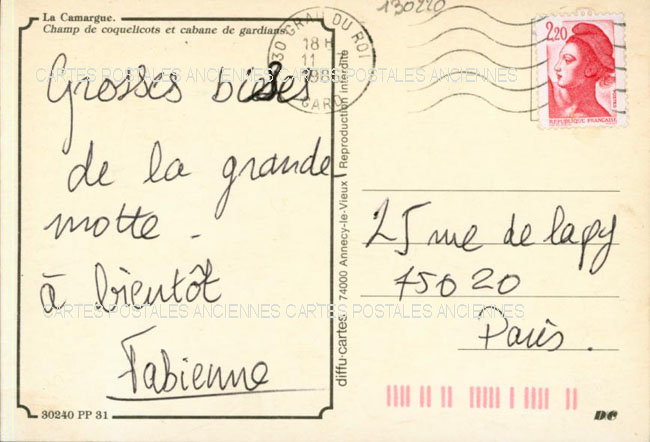 La Camargue.
Champ de coquelicots et cabane de gardians.
130220
30 GRAU DU ROI
18 H
11
GARD
2,20
REPUBLIQUE FRANÇAISE
CARTES POSTALES ANCIENNES CARTES POSTALES ANCIENNES
Grosses bises
de la grande
motte -
à bientôt
Fabienne
25 rue de lapy
75020
Paris.
CARTES POSTALES ANCIENNES CARTES POSTALES ANCIENNES
diffu-cartes 74000 Annecy-le-Vieux - Reproduction interdite
30240 PP 31
DC